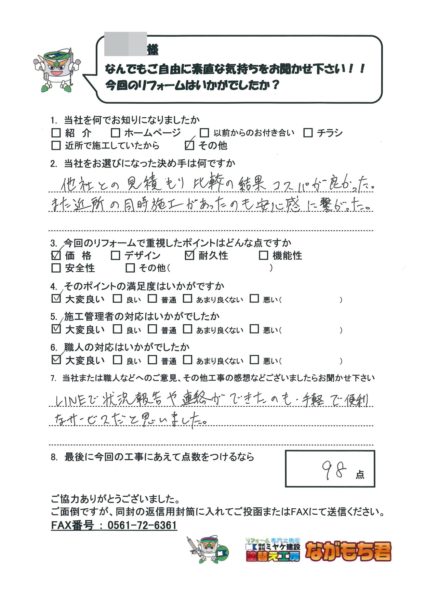 様
なんでもご自由に素直な気持ちをお聞かせ下さい！！
今回のリフォームはいかがでしたか？
1. 当社を何でお知りになりましたか
□ 紹 介 □ ホームページ □ 以前からのお付き合い □ チラシ
□ 近所で施工していたから ☑ その他
2. 当社をお選びになった決め手は何ですか
他社との見積もり比較の結果コスパが良かった。
また近所の同時施工があったのも安心感に繋がった。
3. 今回のリフォームで重視したポイントはどんな点ですか
☑ 価 格 □ デザイン ☑ 耐久性 □ 機能性
□ 安全性 □ その他( )
4. そのポイントの満足度はいかがですか
☑ 大変良い □ 良い □ 普通 □ あまり良くない □ 悪い( )
5. 施工管理者の対応はいかがでしたか
☑ 大変良い □ 良い □ 普通 □ あまり良くない □ 悪い( )
6. 職人の対応はいかがでしたか
☑ 大変良い □ 良い □ 普通 □ あまり良くない □ 悪い( )
7. 当社または職人などへのご意見、その他工事の感想などございましたらお聞かせ下さい
LINEで状況報告や連絡ができたのも手軽で便利
なサービスだと思いました。
8. 最後に今回の工事にあえて点数をつけるなら
98 点
ご協力ありがとうございました。
ご面倒ですが、同封の返信用封筒に入れてご投函またはFAXにて送信ください。
FAX番号 : 0561-72-6361
ミヤケ建設
ながもち君